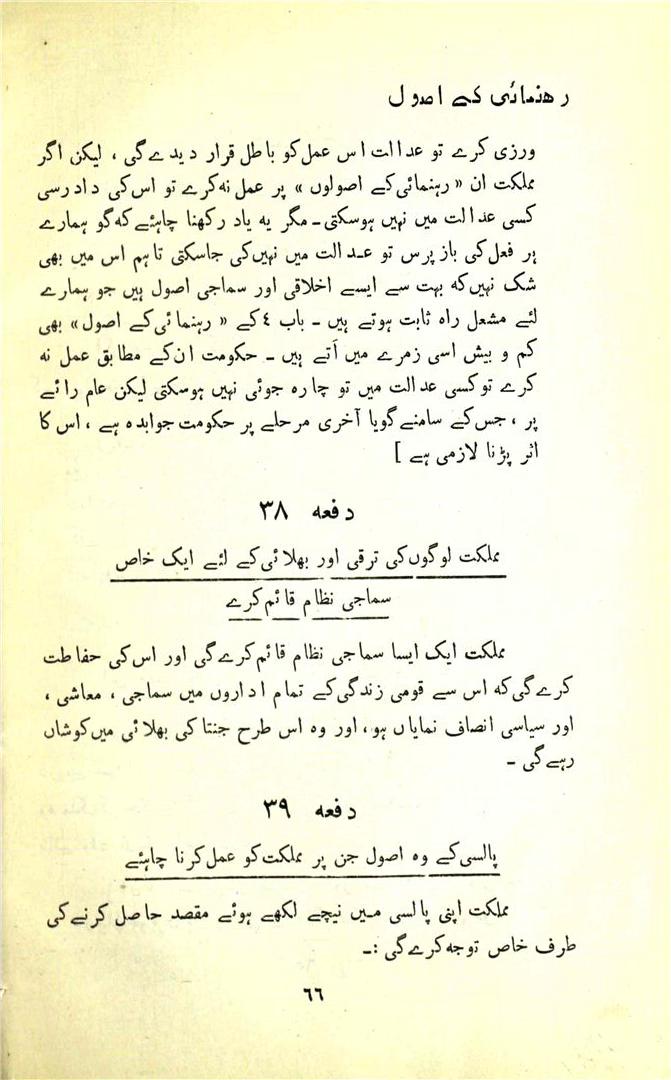 رهنمائی کے اصول
ورزی کرے تو عدالت اس عمل کو باطل قرار دیدے گی ، لیکن اگر
مملکت ان « رہنمائی کے اصولوں » پر عمل نہ کرے تو اس کی دادرسی
کسی عدالت میں نہیں ہوسکتی ۔ مگر یہ یاد رکھنا چاہئے کہ گو ہمارے
ہر فعل کی باز پرس تو عدالت میں نہیں کی جاسکتی تاہم اس میں بھی
شک نہیں کہ بہت سے ایسے اخلاقی اور سماجی اصول ہیں جو ہمارے
لئے مشعل راہ ثابت ہوتے ہیں ۔ باب ٤ کے « رہنمائی کے اصول » بھی
کم و بیش اسی زمرے میں آتے ہیں ۔ حکومت ان کے مطابق عمل نہ
کرے تو کسی عدالت میں تو چارہ جوئی نہیں ہوسکتی لیکن عام رائے
پر ، جس کے سامنے گویا آخری مرحلے پر حکومت جوابدہ ہے ، اس کا
اثر پڑنا لازمی ہے ]
دفعہ ۳۸
مملکت لوگوں کی ترقی اور بھلائی کے لئے ایک خاص
سماجی نظام قائم کرے
مملکت ایک ایسا سماجی نظام قائم کرے گی اور اس کی حفاطت
کرے گی کہ اس سے قومی زندگی کے تمام اداروں میں سماجی ، معاشی ،
اور سیاسی انصاف نمایاں ہو ، اور وہ اس طرح جنتا کی بھلائی میں کوشاں
رہے گی ۔
دفعہ ۳۹
پالسی کے وہ اصول جن پر مملکت کو عمل کرنا چاہئے
مملکت اپنی پالسی میں نیچے لکھے ہوئے مقصد حاصل کرنے کی
طرف خاص توجہ کرے گی :۔
٦٦